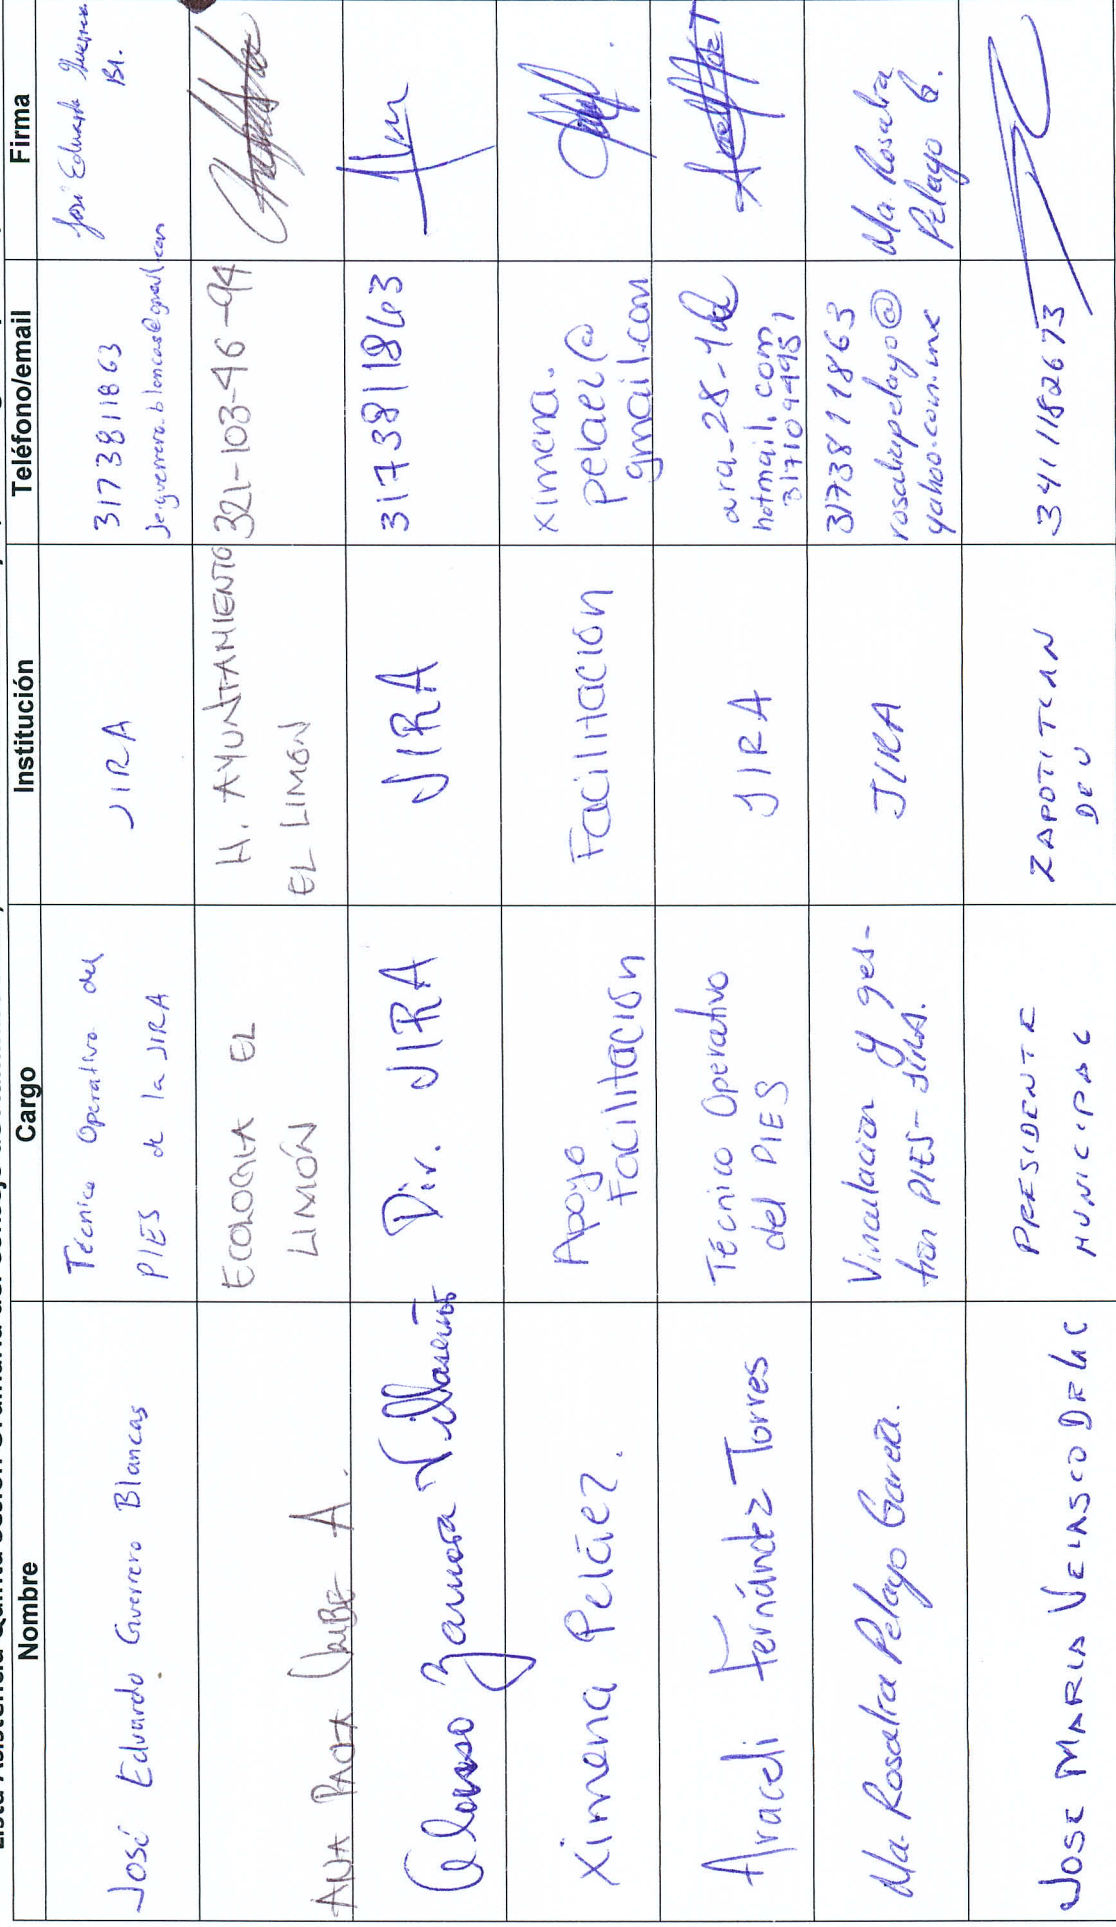 Nombre
Cargo
Institución
Teléfono/email
Firma
José Eduardo Guerrero Blancas
Técnico Operativo del
PIES de la JIRA
JIRA
3173811863
José Eduardo Guerrero
Bl.
ECOLOGIA EL
LIMÓN
H. AYUNTAMIENTO
EL LIMÓN
321-103-46-94
ANA PAOLA URIBE A.
Celsoso Zamora Villaseñor
Dir. JIRA
JIRA
3173811863
Ximena Peláez.
Apoyo
Facilitación
Facilitación
ximena.
pelaez@
gmail.com
Araceli Fernández Torres
Técnico Operativo
del PIES
JIRA
hotmail.com
3171094951
Ma. Rosalra Pelayo García.
Vinculación y ges-
tion PIES-JIRA.
JIRA
3173811863
rosaliapelayo@
yahoo.com.mx
Ma. Rosalra
Pelayo G.
JOSE MARIA VELASCO
PRESIDENTE
MUNICIPAL
ZAPOTITLAN
DE V
3411182673